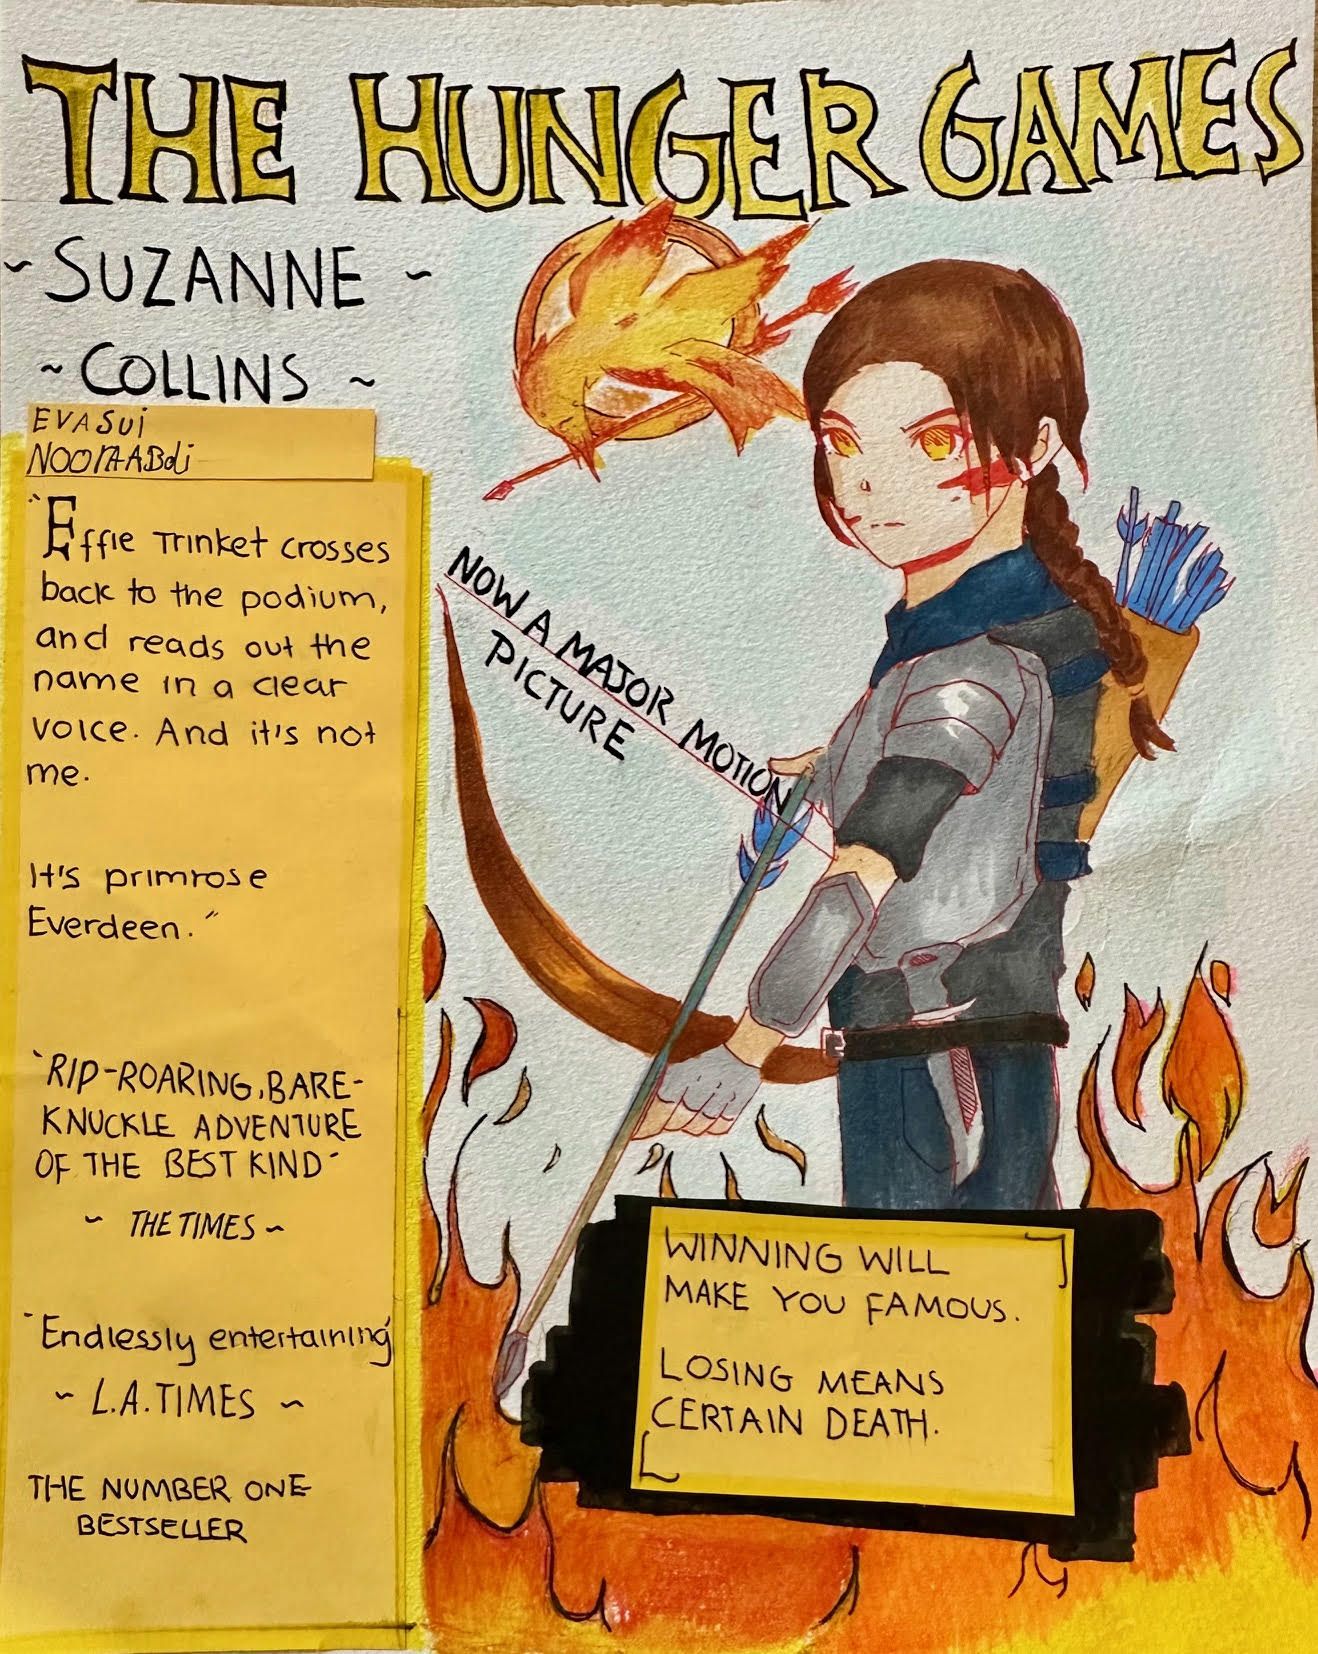 THE HUNGER GAMES
~ SUZANNE ~
~ COLLINS ~
EVA Sui
NOORA ABdi
"Effie Trinket crosses
back to the podium,
and reads out the
name in a clear
voice. And it's not
me.
It's primrose
Everdeen."
"RIP-ROARING, BARE-
KNUCKLE ADVENTURE
OF THE BEST KIND"
~ THE TIMES ~
"Endlessly entertaining"
~ L.A. TIMES ~
THE NUMBER ONE
BESTSELLER
NOW A MAJOR MOTION
PICTURE
WINNING WILL
MAKE YOU FAMOUS.
LOSING MEANS
CERTAIN DEATH.